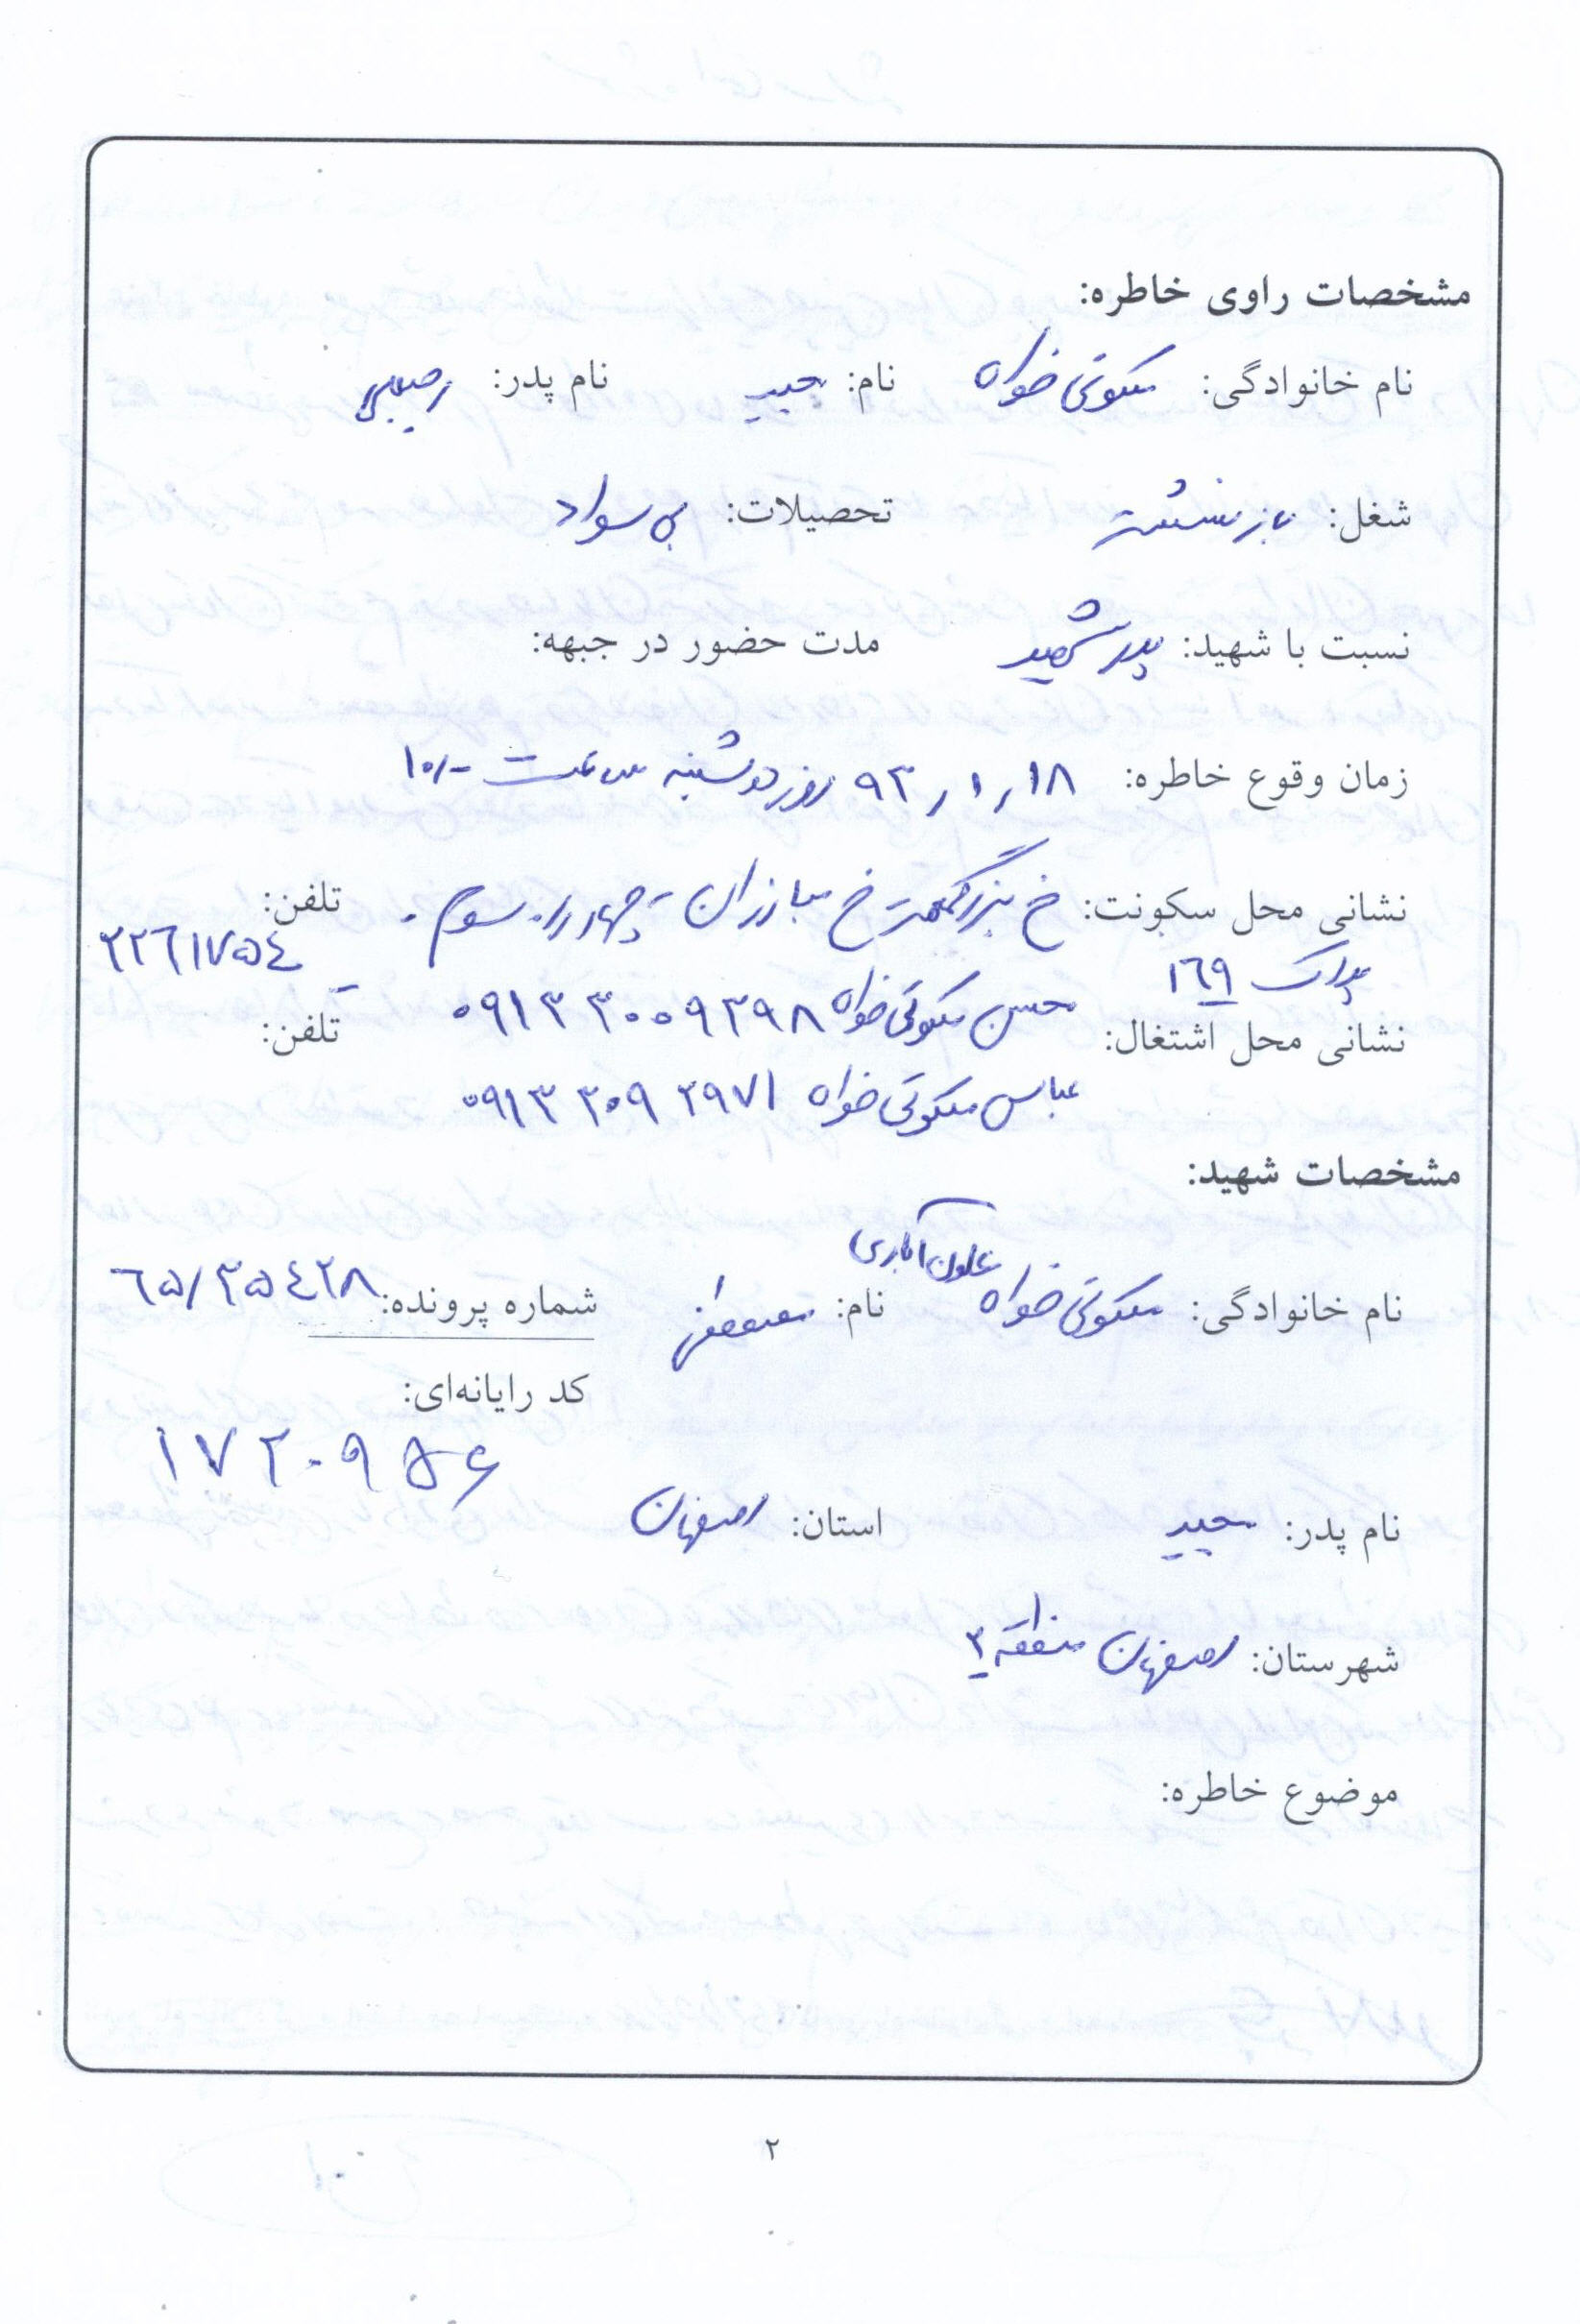 مشخصات راوی خاطره:
نام خانوادگی: سکوتی خواه نام: حبیب نام پدر: رجبعلی
شغل: بازنشسته تحصیلات: بی سواد
نسبت با شهید: پدر شهید مدت حضور در جبهه:
زمان وقوع خاطره: ۹۳/۱/۱۸ روز دوشنبه ساعت ۱۰/-
نشانی محل سکونت: خ بزرگمهر خ مبارزان - چهارراه سوم - تلفن:
پلاک ۱٦۹ ۲۲٦۱۷۵٤
نشانی محل اشتغال: حسن سکوتی خواه ۰۹۱۳۳۰۰۹۳۹۸ تلفن:
عباس سکوتی خواه ۰۹۱۳ ۳۰۹ ۲۹۷۱
مشخصات شهید:
نام خانوادگی: سکوتی خواه نام: شماره پرونده: ٦۵/۳۵٤۲۸
کد رایانه‌ای:
۱۷۲۰۹۵۶
نام پدر: حبیب استان: اصفهان
شهرستان: اصفهان منطقه ۳
موضوع خاطره:
۲